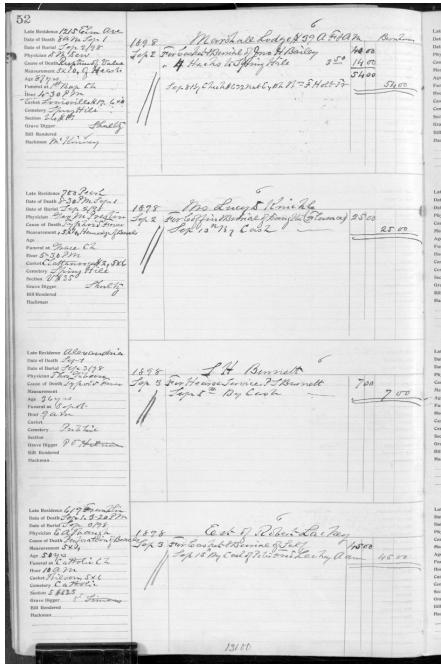 52
Late Residence 1215 Elm Ave
Date of Death 8 AM Sep 1
Date of Burial Sep 2/98
Physician
Cause of Death Rupture of Valve
Measurement 5x10, of Heart
Age 37 yrs
Funeral at 1st Bap Ch
Hour 4-30 PM
Casket
Cemetery Spring Hill
Section
Grave Digger Shultz
Bill Rendered
Hackman McKinney
6
1898 Marshall Lodge # 39 A F & A M.
Sep 2 For Casket & Burial of Jno H Bailey 40 00
" 4 Hacks to Spring Hill 3 50 14 00
54 00
54 00
Late Residence 700 Park
Date of Death 8-30 PM Sep 1
Date of Burial Sep 2/98
Physician Geo M Preston
Cause of Death Typhoid Fever
Measurement 5x16, Hemorrhage of Bowels
Age
Funeral at Grace Ch
Hour 5-30 PM
Casket Chattanooga #2, 5x6
Cemetery Spring Hill
Section
Grave Digger Shultz
Bill Rendered
Hackman
6
1898 Mrs Lucy S
Sep 2 For Coffin & Burial of Daughter 25 00
Sep 10th By Cash 25 00
Late Residence Alexandria
Date of Death Sep 1
Date of Burial Sep 3/98
Physician
Cause of Death Typhoid Fever
Measurement
Age 36 yrs
Funeral at Depot
Hour 9 am
Casket
Cemetery Public
Section
Grave Digger
Bill Rendered
Hackman
6
1898 L H Bennett
Sep 3 For Hearse Service Bennett 7 00
Sep 5th By Cash 7 00
Late Residence 619 Franklin
Date of Death Sep 1, 3-20 PM
Date of Burial Sep 3/98
Physician
Cause of Death of Bowels
Measurement 5x4
Age 50 yrs
Funeral at Catholic Ch
Hour 10 AM
Casket 5x6
Cemetery Catholic
Section
Grave Digger Simons
Bill Rendered
Hackman
6
1898 Est of Robert Lackey
Sep 3 For Casket & Burial of Self 45 00
Sep 15 By Lackey 45 00
131 00